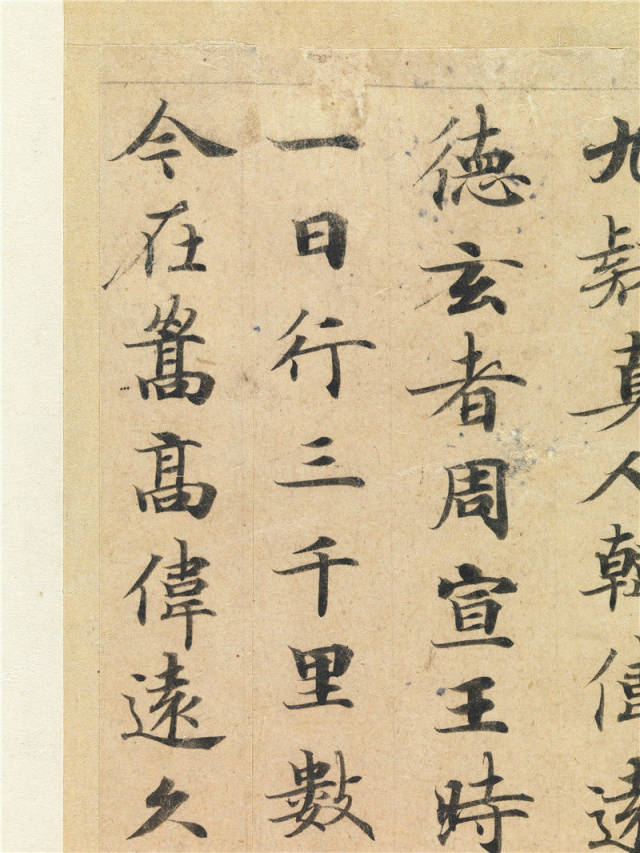 九疑真人韓偉遠
德玄者周宣王時
一日行三千里數
今在嵩高偉遠久